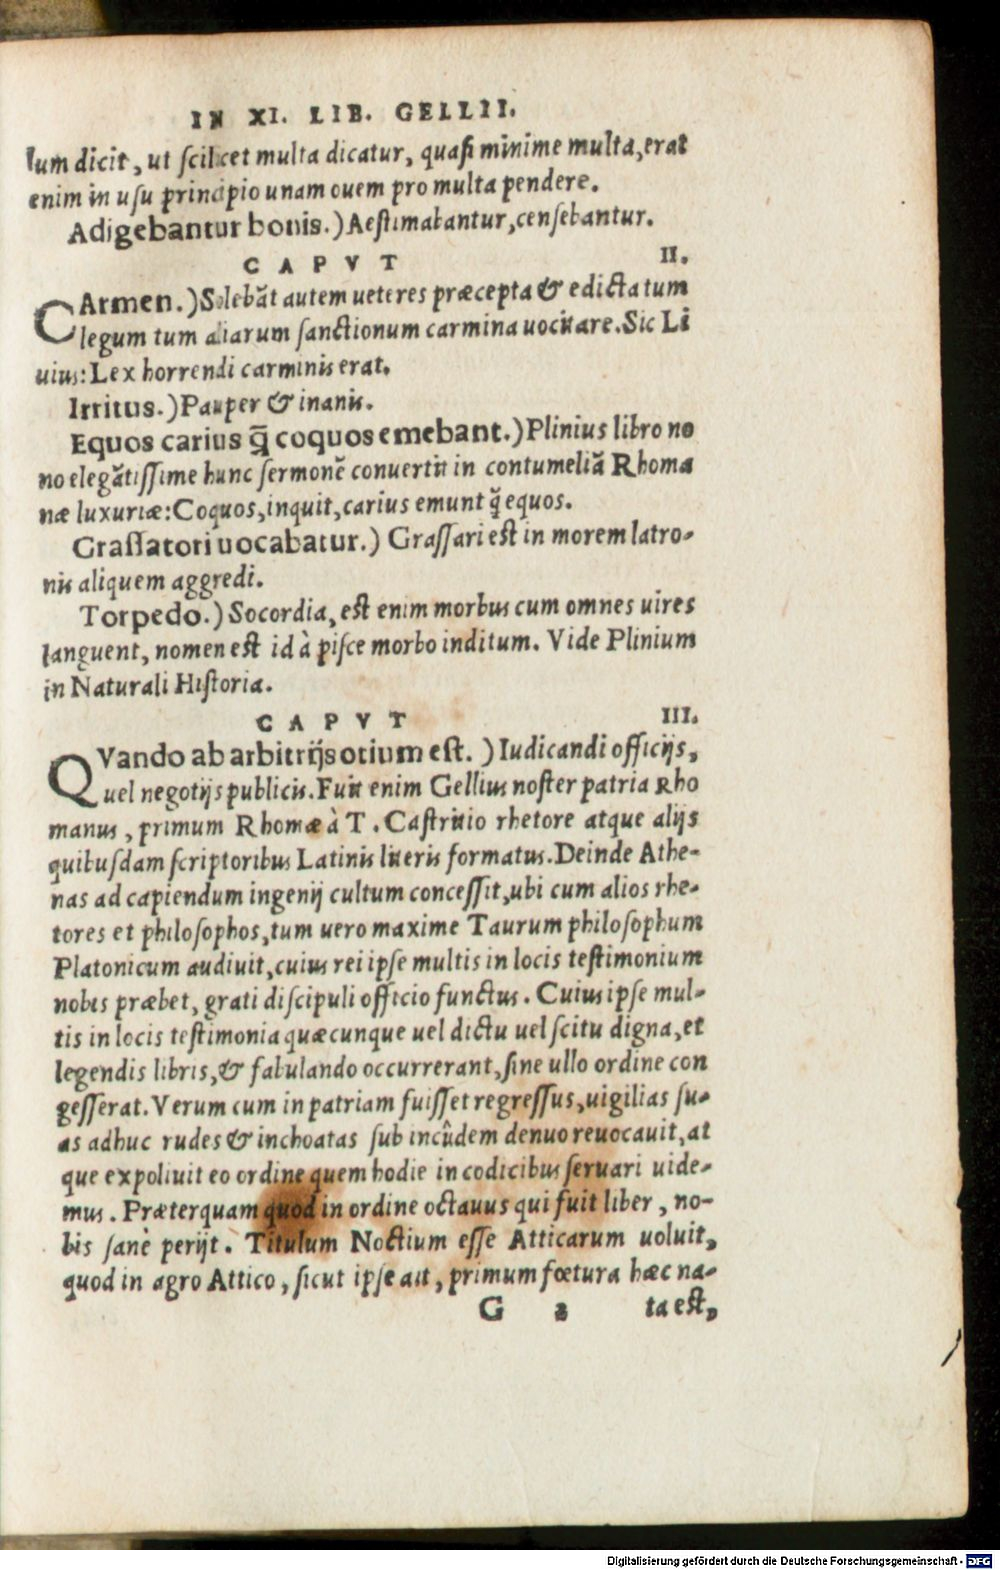 IN XI. LIB. GELLII.
lum dicit, ut scilicet multa dicatur, quasi minime multa, erat
enim in usu principio unam ouem pro multa pendere.
Adigebantur bonis.) Aestimabantur, censebantur.
CAPVT II.
CArmen.) Solebāt autem ueteres præcepta & edicta tum
legum tum aliarum sanctionum carmina uocitare. Sic Li
uius: Lex horrendi carminis erat.
Irritus.) Pauper & inanis.
Equos carius q̄ coquos emebant.) Plinius libro no
no elegātissime hunc sermonē conuertit in contumeliā Rhoma
næ luxuriæ: Coquos, inquit, carius emunt q̄ equos.
Grassatori uocabatur.) Grassari est in morem latro-
nis aliquem aggredi.
Torpedo.) Socordia, est enim morbus cum omnes uires
languent, nomen est id à pisce morbo inditum. Vide Plinium
in Naturali Historia.
CAPVT III.
QVando ab arbitrijs otium est. ) Iudicandi officijs,
uel negotijs publicis. Fuit enim Gellius noster patria Rho
manus, primum Rhomæ à T. Castritio rhetore atque alijs
quibusdam scriptoribus Latinis literis formatus. Deinde Athe-
nas ad capiendum ingenij cultum concessit, ubi cum alios rhe-
tores et philosophos, tum uero maxime Taurum philosophum
Platonicum audiuit, cuius rei ipse multis in locis testimonium
nobis præbet, grati discipuli officio functus. Cuius ipse mul-
tis in locis testimonia quæcunque uel dictu uel scitu digna, et
legendis libris, & fabulando occurrerant, sine ullo ordine con
gesserat. Verum cum in patriam fuisset regressus, uigilias su-
as adhuc rudes & inchoatas sub incûdem denuo reuocauit, at
que expoliuit eo ordine quem hodie in codicibus seruari uide-
mus. Præterquam quod in ordine octauus qui fuit liber, no-
bis sanè perijt. Titulum Noctium esse Atticarum uoluit,
quod in agro Attico, sicut ipse ait, primum fœtura hæc na-
G 2 ta est,
Digitalisierung gefördert durch die Deutsche Forschungsgemeinschaft - DFG